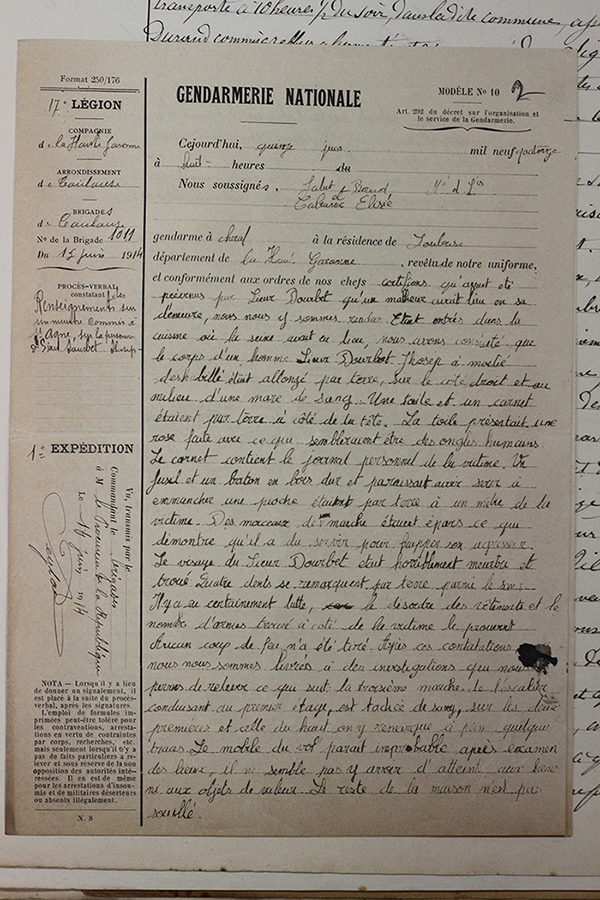 transporté à 10 heures ½ du soir, dans la dite commune,
Durand commissaire
Format 250/176
17e LÉGION
COMPAGNIE
de la Haute Garonne
ARRONDISSEMENT
de Toulouse
BRIGADES
de Toulouse
No de la Brigade 1011
Du 15 juin 1914
PROCÈS-VERBAL
constatant des
Renseignements sur
un meurtre commis à
St Agne, sur la personne
Joseph
1re EXPÉDITION
Vu, transmis par le
Commandant le
à M. le Procureur de la République
Le 16 juin 1914
NOTA — Lorsqu'il y a lieu
de donner un signalement, il
est placé à la suite du procès-
verbal, après les signatures.
L'emploi de formules im-
primées peut être toléré pour
les contraventions, arresta-
tions en vertu de contraintes
par corps, recherches, etc.
mais seulement lorsqu'il n'y a
pas de faits particuliers à re-
lever et sous réserve de la non
opposition des autorités inté-
ressées. Il en est de même
pour les arrestations d'insou-
mis et de militaires déserteurs
ou absents illégalement.
N. 8
GENDARMERIE NATIONALE
MODÈLE No 10
2
Art. 292 du décret sur l'organisation et
le service de la Gendarmerie.
Cejourd'hui, quinze juin mil neuf quatorze
à huit heures du
Nous soussignés,
Elisée
gendarme à cheval à la résidence de Toulouse
département de la Haute Garonne, revêtu de notre uniforme,
et conformément aux ordres de nos chefs certifions qu'ayant été
prévenus par Sieur Dourbet qu'un malheur avait lieu en sa
demeure, nous nous y sommes rendus. Etant entrés dans la
cuisine où la scène avait eu lieu, nous avons constaté que
le corps d'un homme Sieur Dourbet Jhosep à moitié
deshabillé était allongé par terre, sur le côté droit et au
milieu d'une mare de sang. Une toile et un carnet
étaient par terre à côté de la tête. La toile présentait une
rose faite avec ce qui sembleraient être des ongles humains
Le carnet contient le journal personnel de la victime. Un
fusil et un baton en bois dur et paraissait avoir servir à
emmancher une pioche étaient par terre à un mètre de la
victime. Des morceaux de manche étaient épars ce qui
démontre qu'il a du servir pour frapper son agresseur.
Le visage du Sieur Dourbet était horriblement meurtri et
troué. Quatre dents se remarquent par terre parmi le sang
Il y a eu certainement lutte, le désordre des vêtements et le
nombre d'armes trouvé à coté de la victime le prouvent
Aucun coup de feu n'a été tiré. Après ces constatations
nous nous sommes livrées à des investigations qui nous
permis de relever ce qui suit la troisième marche de l'escalier
conduisant au premier étage, est tachée de sang, sur les deux
premières et celle du haut on y remarque à peine quelques
traces. Le mobile du vol parait improbable après examen
des lieux, il ne semble pas y avoir d'atteint aux biens
ni aux objets de valeur. Le reste de la maison n'est pas
souillé.